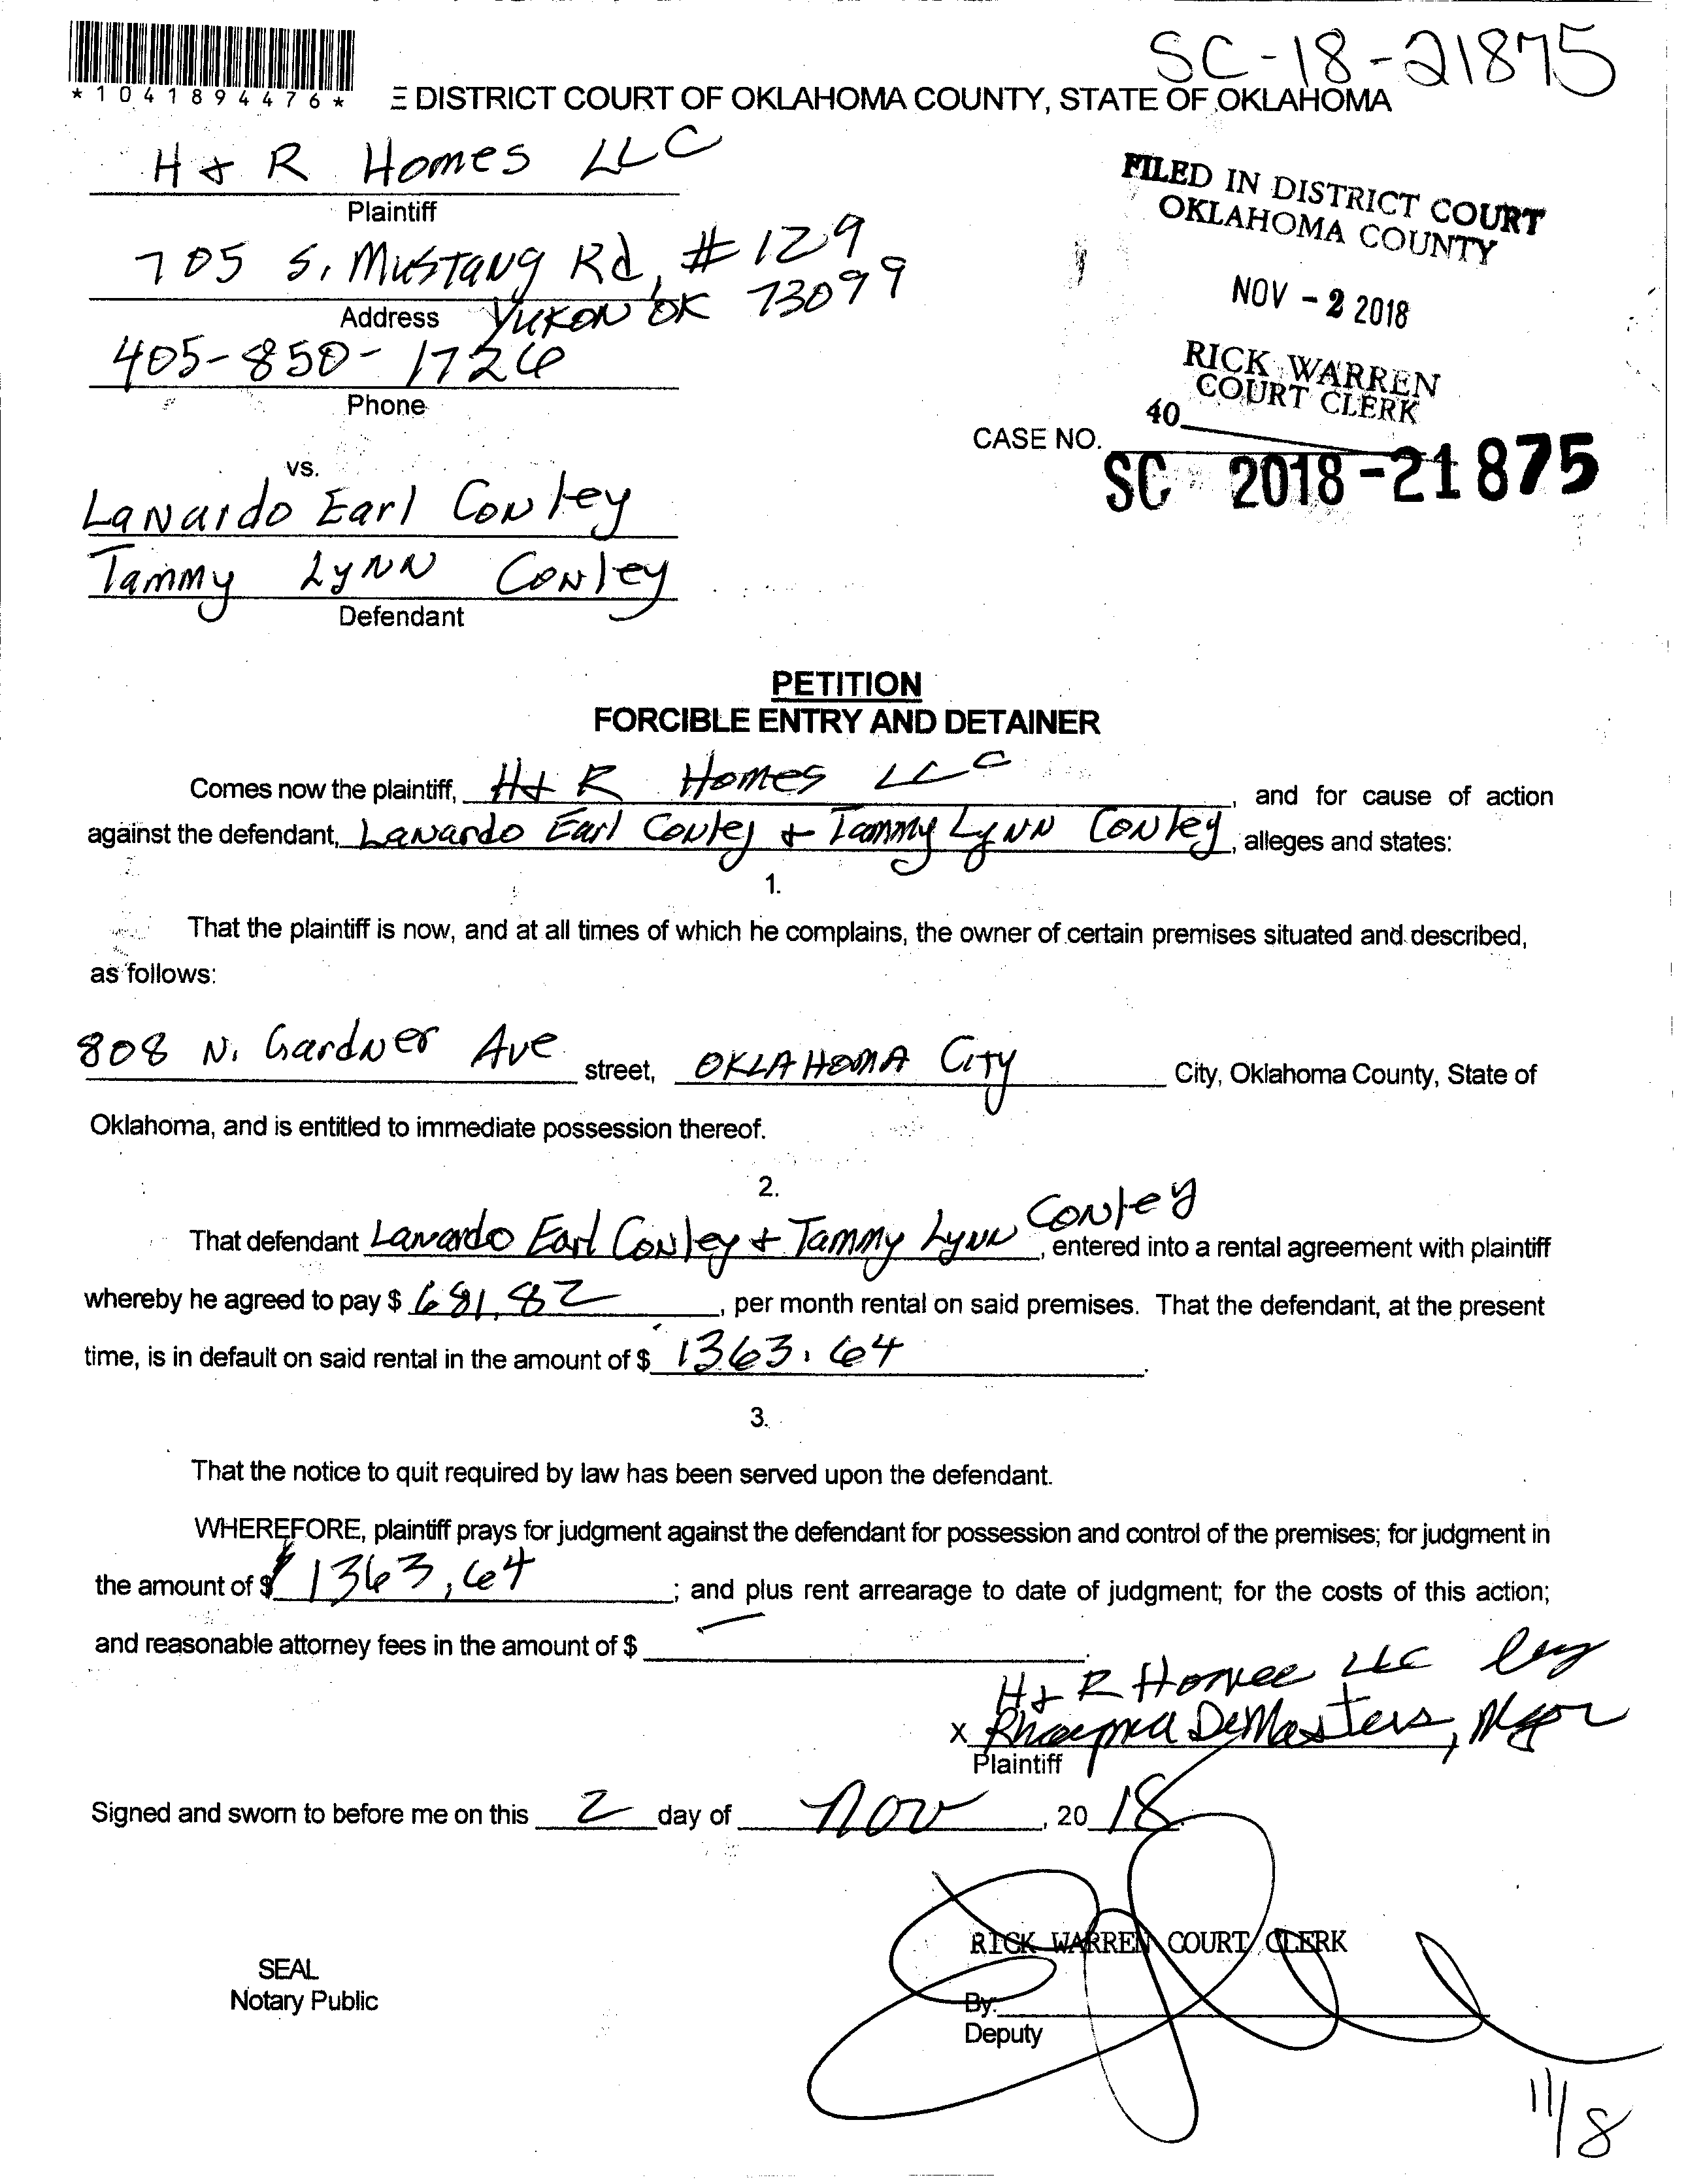 SC-18-21875
*1041894476*
E DISTRICT COURT OF OKLAHOMA COUNTY, STATE OF OKLAHOMA
H & R Homes LLC
Plaintiff
705 S. Mustang Rd, #129
Address Yukon OK 73099
405-850-1726
Phone
FILED IN DISTRICT COURT
OKLAHOMA COUNTY
NOV - 2 2018
RICK WARREN
COURT CLERK
40
CASE NO.
SC 2018-21875
vs.
Lanardo Earl Conley
Tammy Lynn Conley
Defendant
PETITION
FORCIBLE ENTRY AND DETAINER
Comes now the plaintiff, H & R Homes LLC, and for cause of action
against the defendant, Lanardo Earl Conley & Tammy Lynn Conley, alleges and states:
1.
That the plaintiff is now, and at all times of which he complains, the owner of certain premises situated and described,
as follows:
808 N. Gardner Ave street, OKLAHOMA CITY City, Oklahoma County, State of
Oklahoma, and is entitled to immediate possession thereof.
2.
That defendant Lanardo Earl Conley & Tammy Lynn Conley, entered into a rental agreement with plaintiff
whereby he agreed to pay $ 681.82, per month rental on said premises. That the defendant, at the present
time, is in default on said rental in the amount of $ 1363.64.
3.
That the notice to quit required by law has been served upon the defendant.
WHEREFORE, plaintiff prays for judgment against the defendant for possession and control of the premises; for judgment in
the amount of $ 1363.64; and plus rent arrearage to date of judgment; for the costs of this action;
and reasonable attorney fees in the amount of $ .
H & R Homes LLC by
X DeMasters, Mgr
Plaintiff
Signed and sworn to before me on this 2 day of Nov, 2018.
RICK WARREN COURT CLERK
SEAL
Notary Public
By:
Deputy
11/8